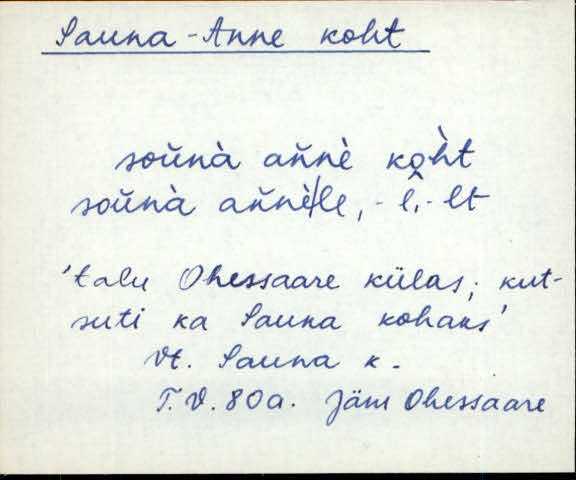 Sauna-Anne koht
soŭnà aňnè ko̭h̀t
soŭnà aňnè/le, -l̀, -lt
'talu Ohessaare külas; kut-
suti ka Sauna kohaks'
Vt. Sauna k.
T.V. 80a. Jäm Ohessaare